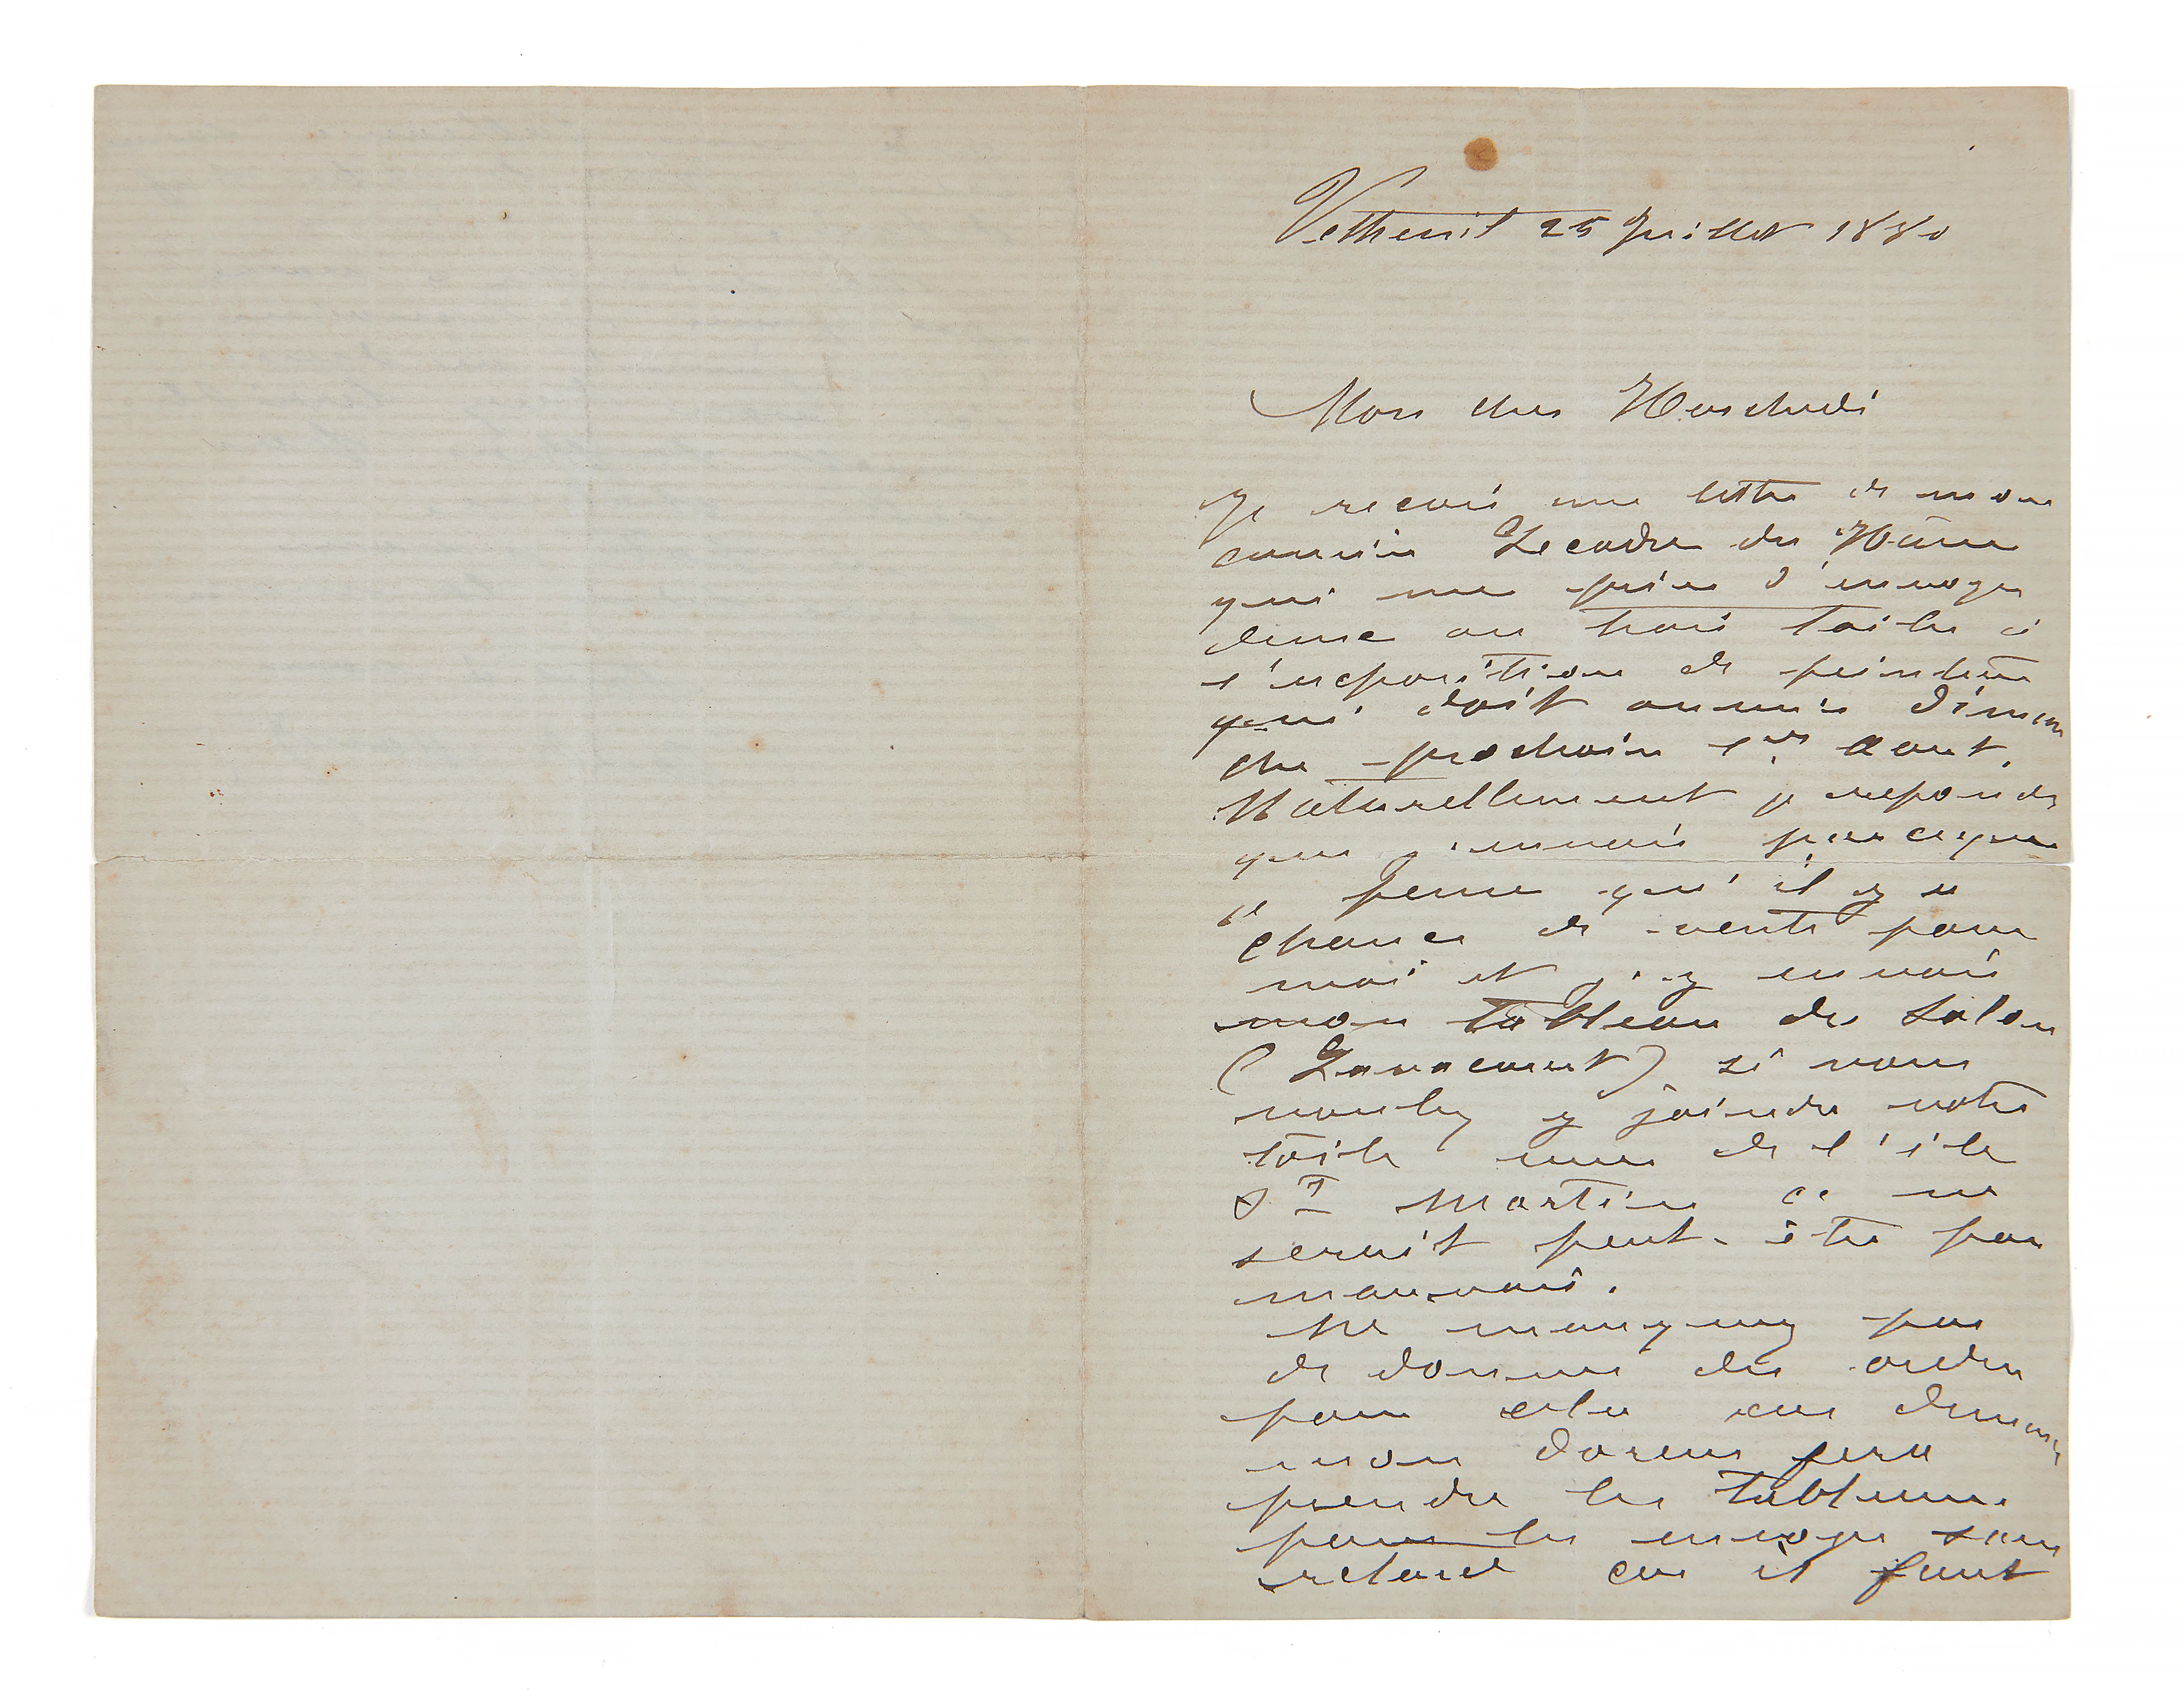 Vetheuil 25 Juillet 1880
Mon cher Hoschedé
Je reçois une lettre de mon
cousin Lecadre du Hâvre
qui me prie d'envoyer
deux ou trois toiles à
l'exposition de peinture
qui doit ouvrir diman
che prochain 1er aout.
Naturellement je reponds
que j'envois parceque
je pense qu'il y a
chance de vente pour
moi et j'y envois
mon tableau du Salon
(Lavacourt) si vous
voulez y joindre votre
toile vue de l'ile
St Martin ce ne
serait peut-être pas
mauvais.
Ne manquez pas
de donner des ordres
pour cela car demain
mon doreur fera
prendre les tableaux
pour les envoyer sans
retard car il faut